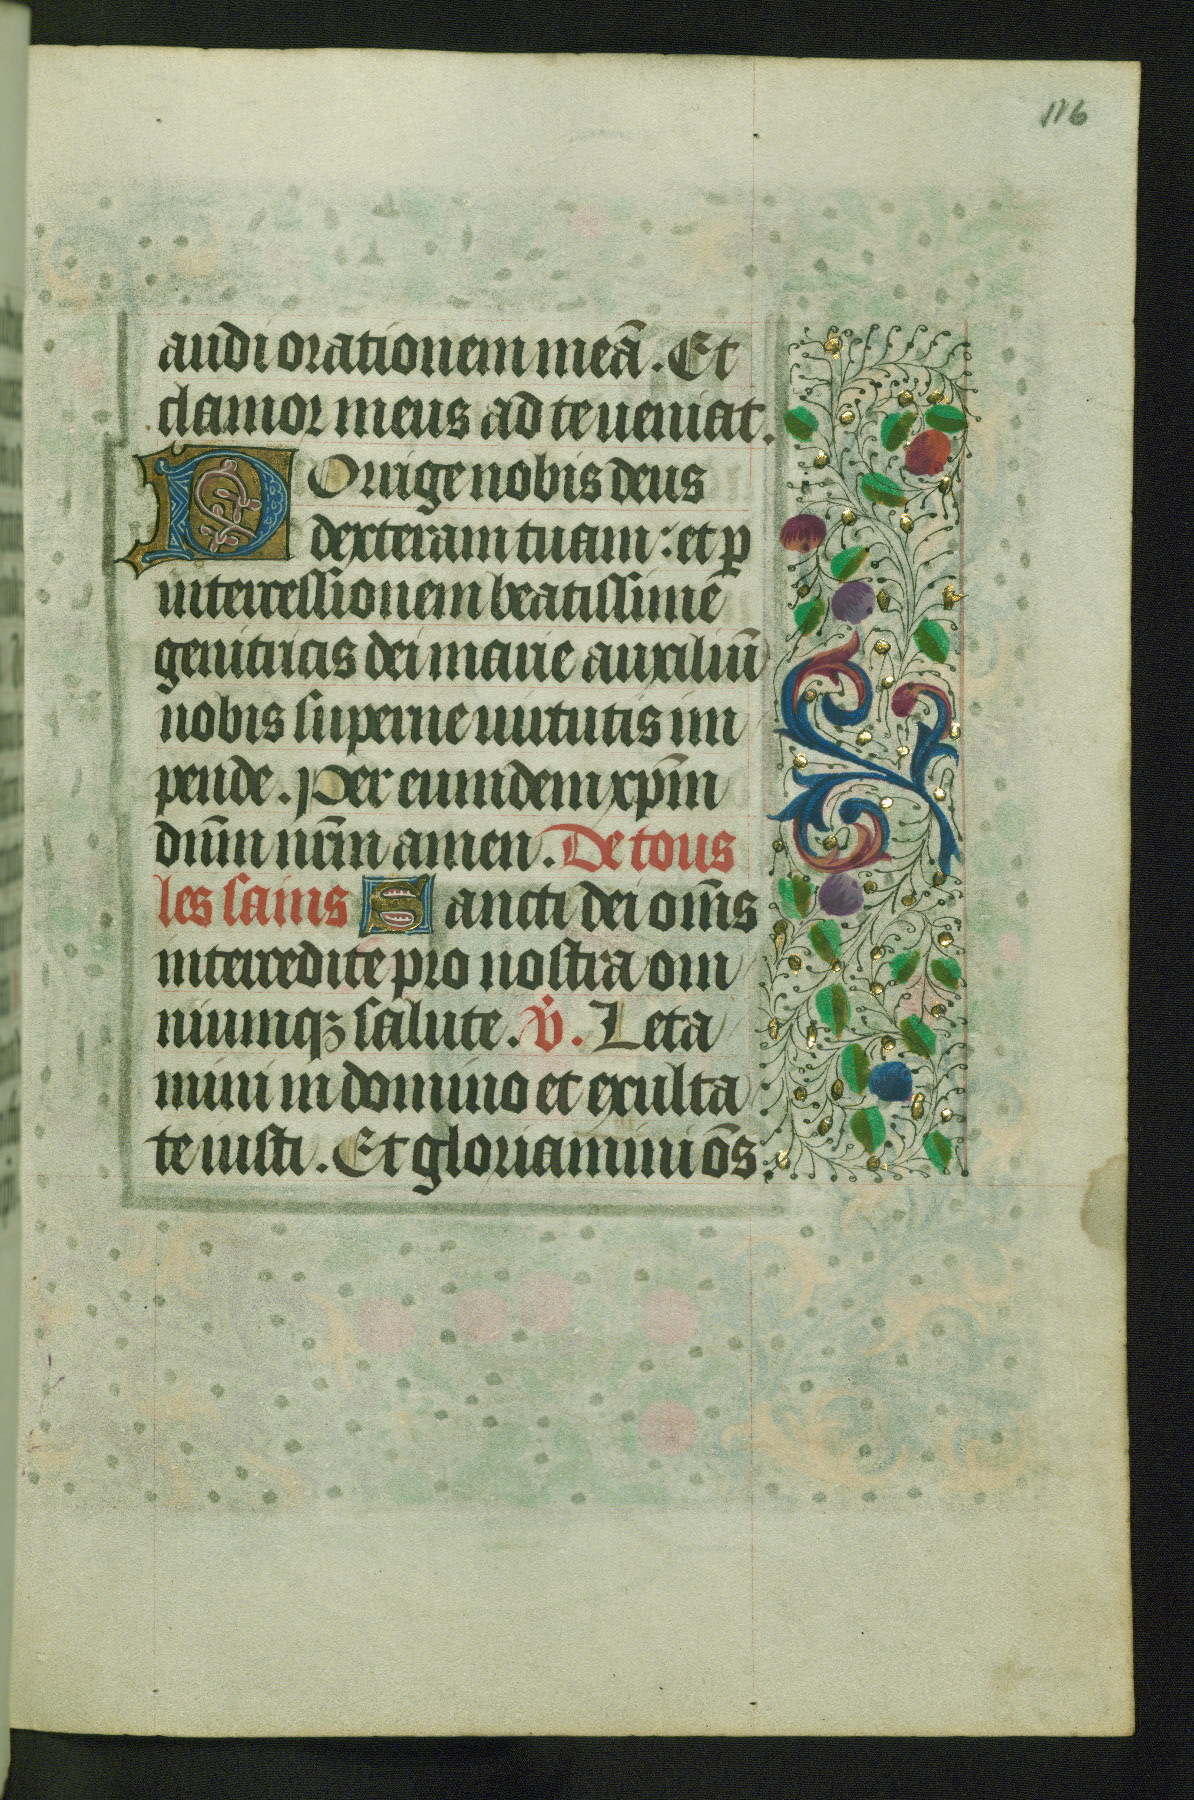 116
audi orationem meā. Et
clamor meus ad te ueniat.
POrrige nobis deus
dexteram tuam: et p̱
intercessionem beatissime
genitricis dei marie auxiliū
nobis superne uirtutis im
pende. Per eumdem xp̄m
dnm̄ nrm̄ amen. De tous
les sains Sancti dei om̄s
intercedite pro nostra om
niumqꝫ salute. v̇. Leta
mini in domino et exulta
te iusti. Et gloriamini ōs.